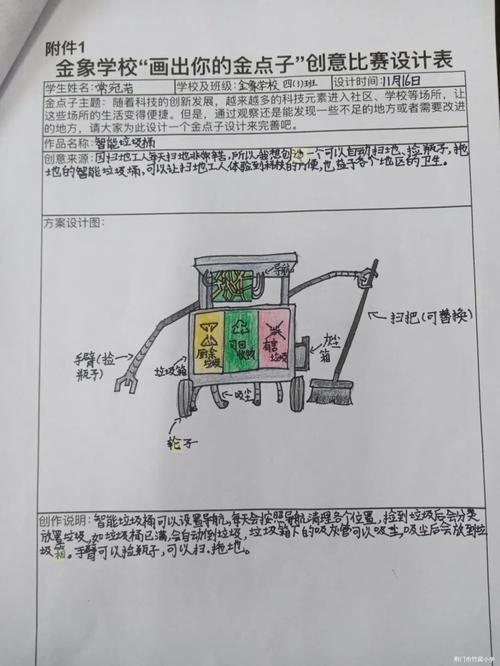 附件1
金象学校“画出你的金点子”创意比赛设计表
学生姓名:常宛若 学校及班级:金象学校 四(1)班 设计时间:11月16日
金点子主题：随着科技的创新发展，越来越多的科技元素进入社区、学校等场所，让
这些场所的生活变得便捷。但是，通过观察还是能发现一些不足的地方或者需要改进
的地方，请大家为此设计一个金点子设计来完善吧。
作品名称:智能垃圾桶
创意来源：因扫地工人每天扫地非常辛苦，所以我想创造一个可以自动扫地、捡瓶子，拖
地的智能垃圾桶，可以让扫地工人体验到科技的方便，也益于各个地区的卫生。
方案设计图：
导航
手臂(捡
瓶子)
垃圾箱
厨余
垃圾
可回
收物
有害
垃圾
灰尘
箱
扫把(可替换)
吸尘
轮子
创作说明：智能垃圾桶可以设置导航，每天会按照导航清理各个位置，捡到垃圾后会分类
放置垃圾，如垃圾桶已满，会自动倒垃圾，垃圾箱下的吸灰管可以吸尘，吸尘后会放到垃
圾箱。手臂可以捡瓶子，可以扫、拖地。
荆门市竹园小学